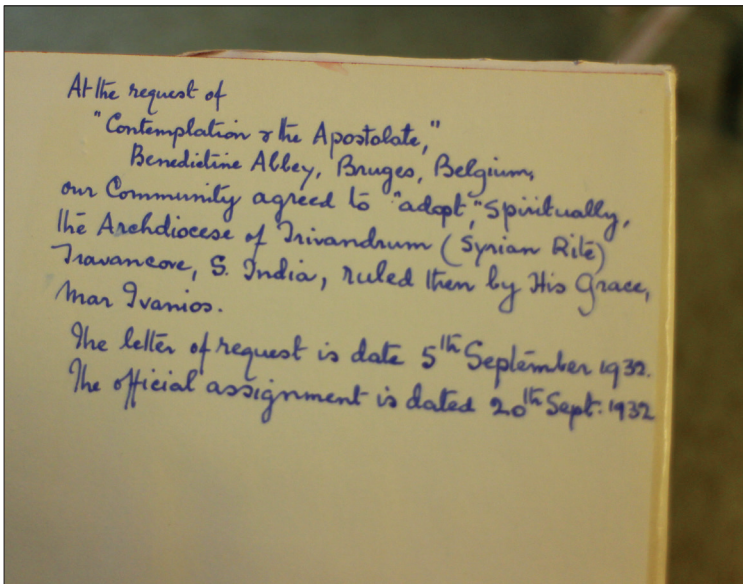 At the request of
"Contemplation & the Apostolate,"
Benedictine Abbey, Bruges, Belgium,
our Community agreed to "adopt," Spiritually,
the Archdiocese of Trivandrum (Syrian Rite)
Travancore, S. India, ruled then by His Grace,
Mar Ivanios.
The letter of request is date 5th September 1932.
The official assignment is dated 20th Sept: 1932